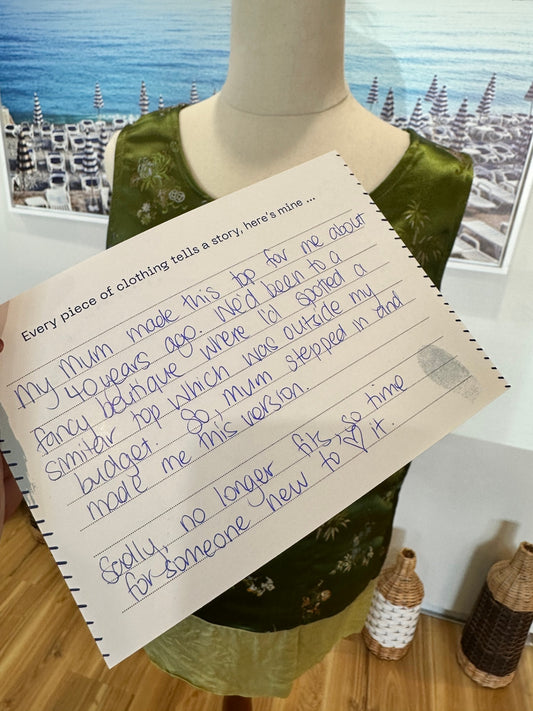 Every piece of clothing tells a story, here's mine ...
My Mum made this top for me about
40 years ago. We'd been to a
fancy boutique where I'd spotted a
similar top which was outside my
budget. So, Mum stepped in and
made me this version.
Sadly, no longer fits, so time
for someone new to ♡ it.